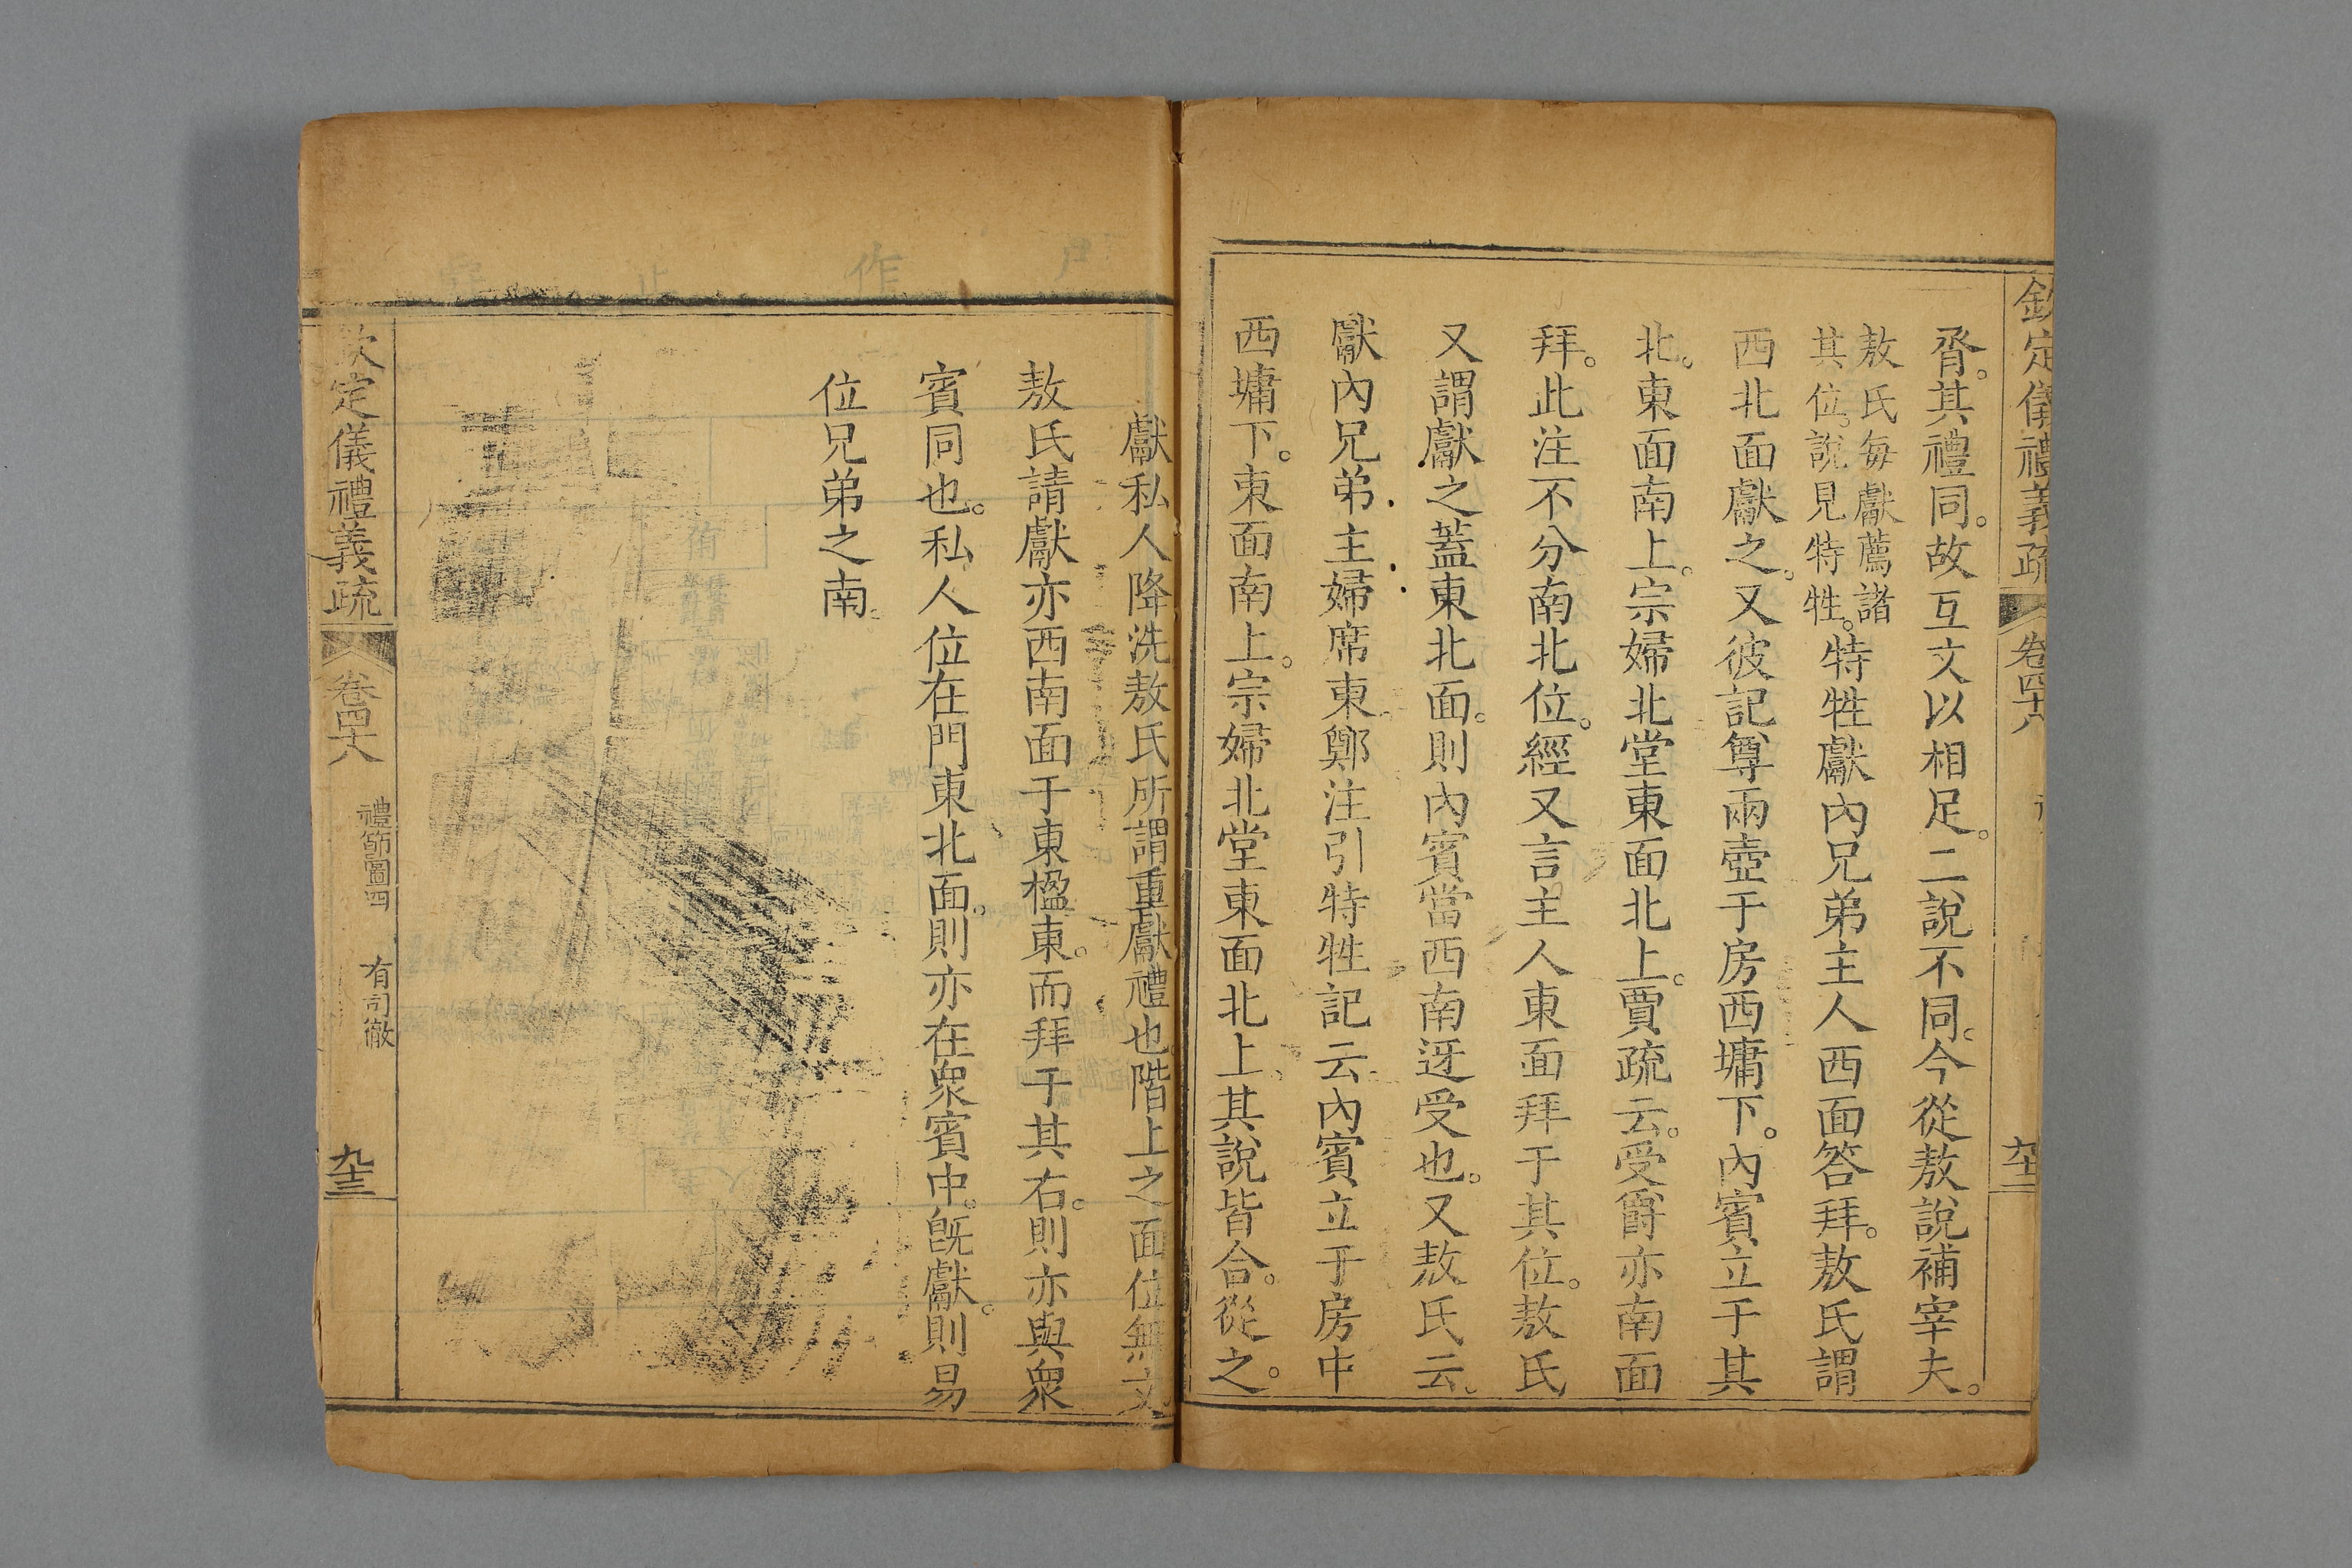 欽定儀禮義疏 卷四十八 九十二
胥。其禮同。故互文以相足。二說不同。今從敖說補宰夫。
敖氏每獻薦諸
其位。說見特牲。
特牲獻內兄弟主人西面答拜。敖氏謂
西北面獻之。又彼記尊兩壺于房西墉下。內賓立于其
北。東面南上。宗婦北堂東面北上。賈疏云。受爵亦南面
拜。此注不分南北位。經又言主人東面拜于其位。敖氏
又謂獻之蓋東北面。則內賓當西南迓受也。又敖氏云。
獻內兄弟主婦席東鄭注引特牲記云內賓立于房中
西墉下。東面南上。宗婦北堂東面北上。其說皆合。從之。
獻私人降洗敖氏所謂重獻禮也階上之面位無文
敖氏請獻亦西南面于東楹東。而拜于其右。則亦與衆
賓同也。私人位在門東北面。則亦在衆賓中。旣獻。則易
位兄弟之南
欽定儀禮義疏 卷四十八 禮節圖四 有司徹 九十三